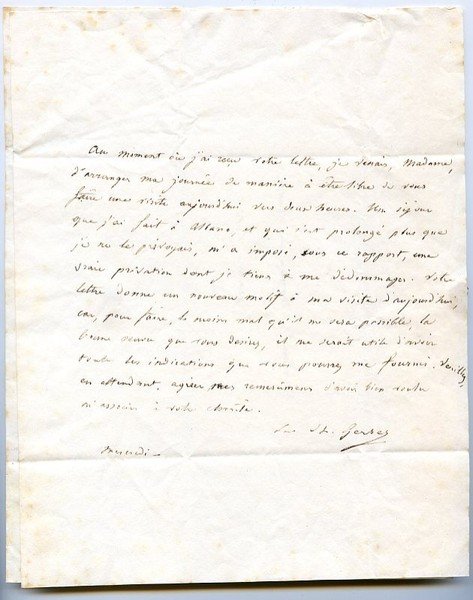 Au moment où j'ai reçu votre lettre, je venais, Madame,
d'arranger ma journée de manière à être libre de vous
faire une visite aujourd'hui vers deux heures. Un séjour
que j'ai fait à et qui s'est prolongé plus que
je ne le prévoyais, m'a imposé, sous ce rapport, une
vraie privation dont je tiens à me dédommager. Votre
lettre donne un nouveau motif à ma visite d'aujourd'hui,
car, pour faire, le moins mal qu'il me sera possible, la
bonne œuvre que vous desirez, il me serait utile d'avoir
toutes les indications que vous pourrez me fournir. Veuillez,
en attendant, agréer mes remerciemens d'avoir bien voulu
m'associer à votre charité.
Mercredi